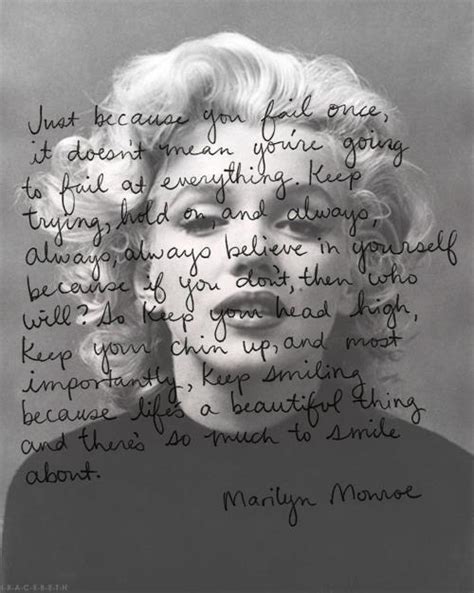 Just because you fail once,
it doesn't mean you're going
to fail at everything. Keep
trying, hold on, and always,
always, always believe in yourself
because if you don't, then who
will? So keep your head high,
Keep your chin up, and most
importantly, Keep smiling
because life's a beautiful thing
and there's so much to smile
about.
Marilyn Monroe